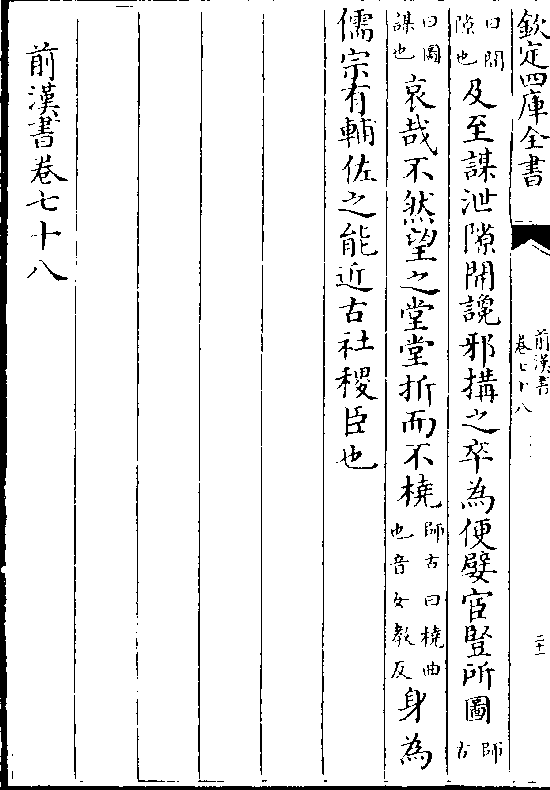 欽定四庫全書
前漢書
卷七十八
二十一
曰間隙也及至謀泄隙開讒邪搆之卒為便嬖宦豎所圖師古
曰圖謀也哀哉不然望之堂堂折而不橈師古曰橈曲也音女教反身為
儒宗有輔佐之能近古社稷臣也
前漢書卷七十八